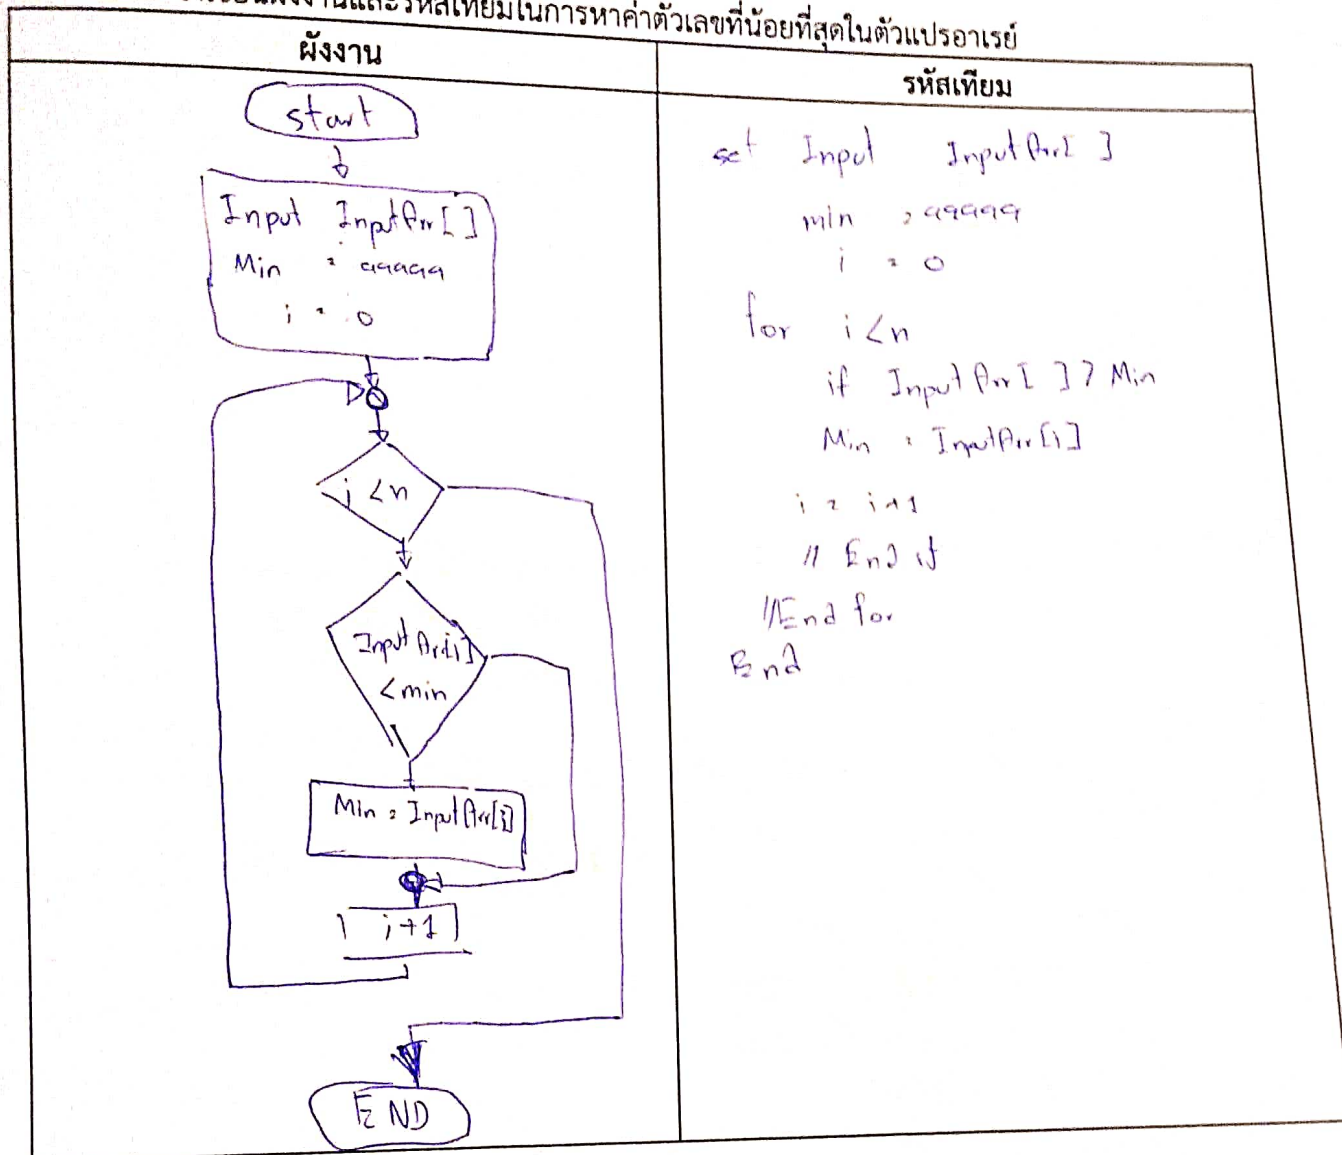 และรหัสเทียมในการหาค่าตัวเลขที่น้อยที่สุดในตัวแปรอาเรย์
ผังงาน
start
Input InputArr[]
Min = 99999
i = 0
i <n
InputArr[i]
<min
Min = InputArr[i]
i+1
END
รหัสเทียม
set Input InputArr[ ]
min = 99999
i = 0
for i <n
if InputArr[ ] > Min
Min = InputArr[i]
i = i+1
// End if
//End for
End